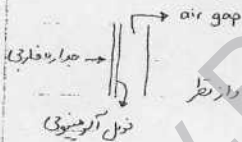 air gap
جداره خارجی
واز نظر
فویل آلومینیومی